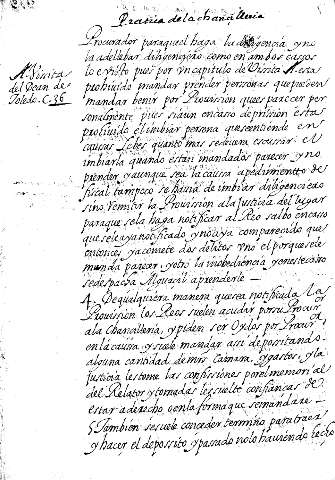 Practica de la chancilleria
Procurador para quel haga la diligencia y no
la ade llebar diligenciero como en ambos cassos
lo e visto pues por un capitulo de Visita esta
Vissita
del Dean de
Toledo. C. 36
prohiuido mandar prender personas que pueden
mandar benir por Provission que es parecer per
sonalmente, pues si aun en casso de prission esta
prohiuido el imbiar persona que entiende en
causas
imbiarla quando estan mandados parecer, y no
prender, y aunque sea la causa a pedimento de
fiscal tampoco se hauia de imbiar diligenciero
sino remitir la Provission a la justicia del lugar
para que se la haga notificar al Reo salbo en casso
que se le aya notificado y no aya comparecido que
entonces ya comete dos delitos uno el porque se le
manda parecer, y otro la inobediencia y en este otro
se despacha Alguacil a prenderle
4. De qualquiera manera que sea notificada la
Provission los Reos suelen acudir por su Procur
a la Chancilleria, y piden ser Oydos por Procur
en la caussa, y suelo mandar assi depositando
alguna cantidad de mrs Camara, y gastos, y la
justicia les tome las confissiones por el memorial
del Relator y tomadas les suelte con fianças de
estar a derecho, o en la forma que se mandare
5. Tambien se suele conceder termino para traer
y hacer el depossito y passado no lo hauiendo hecho